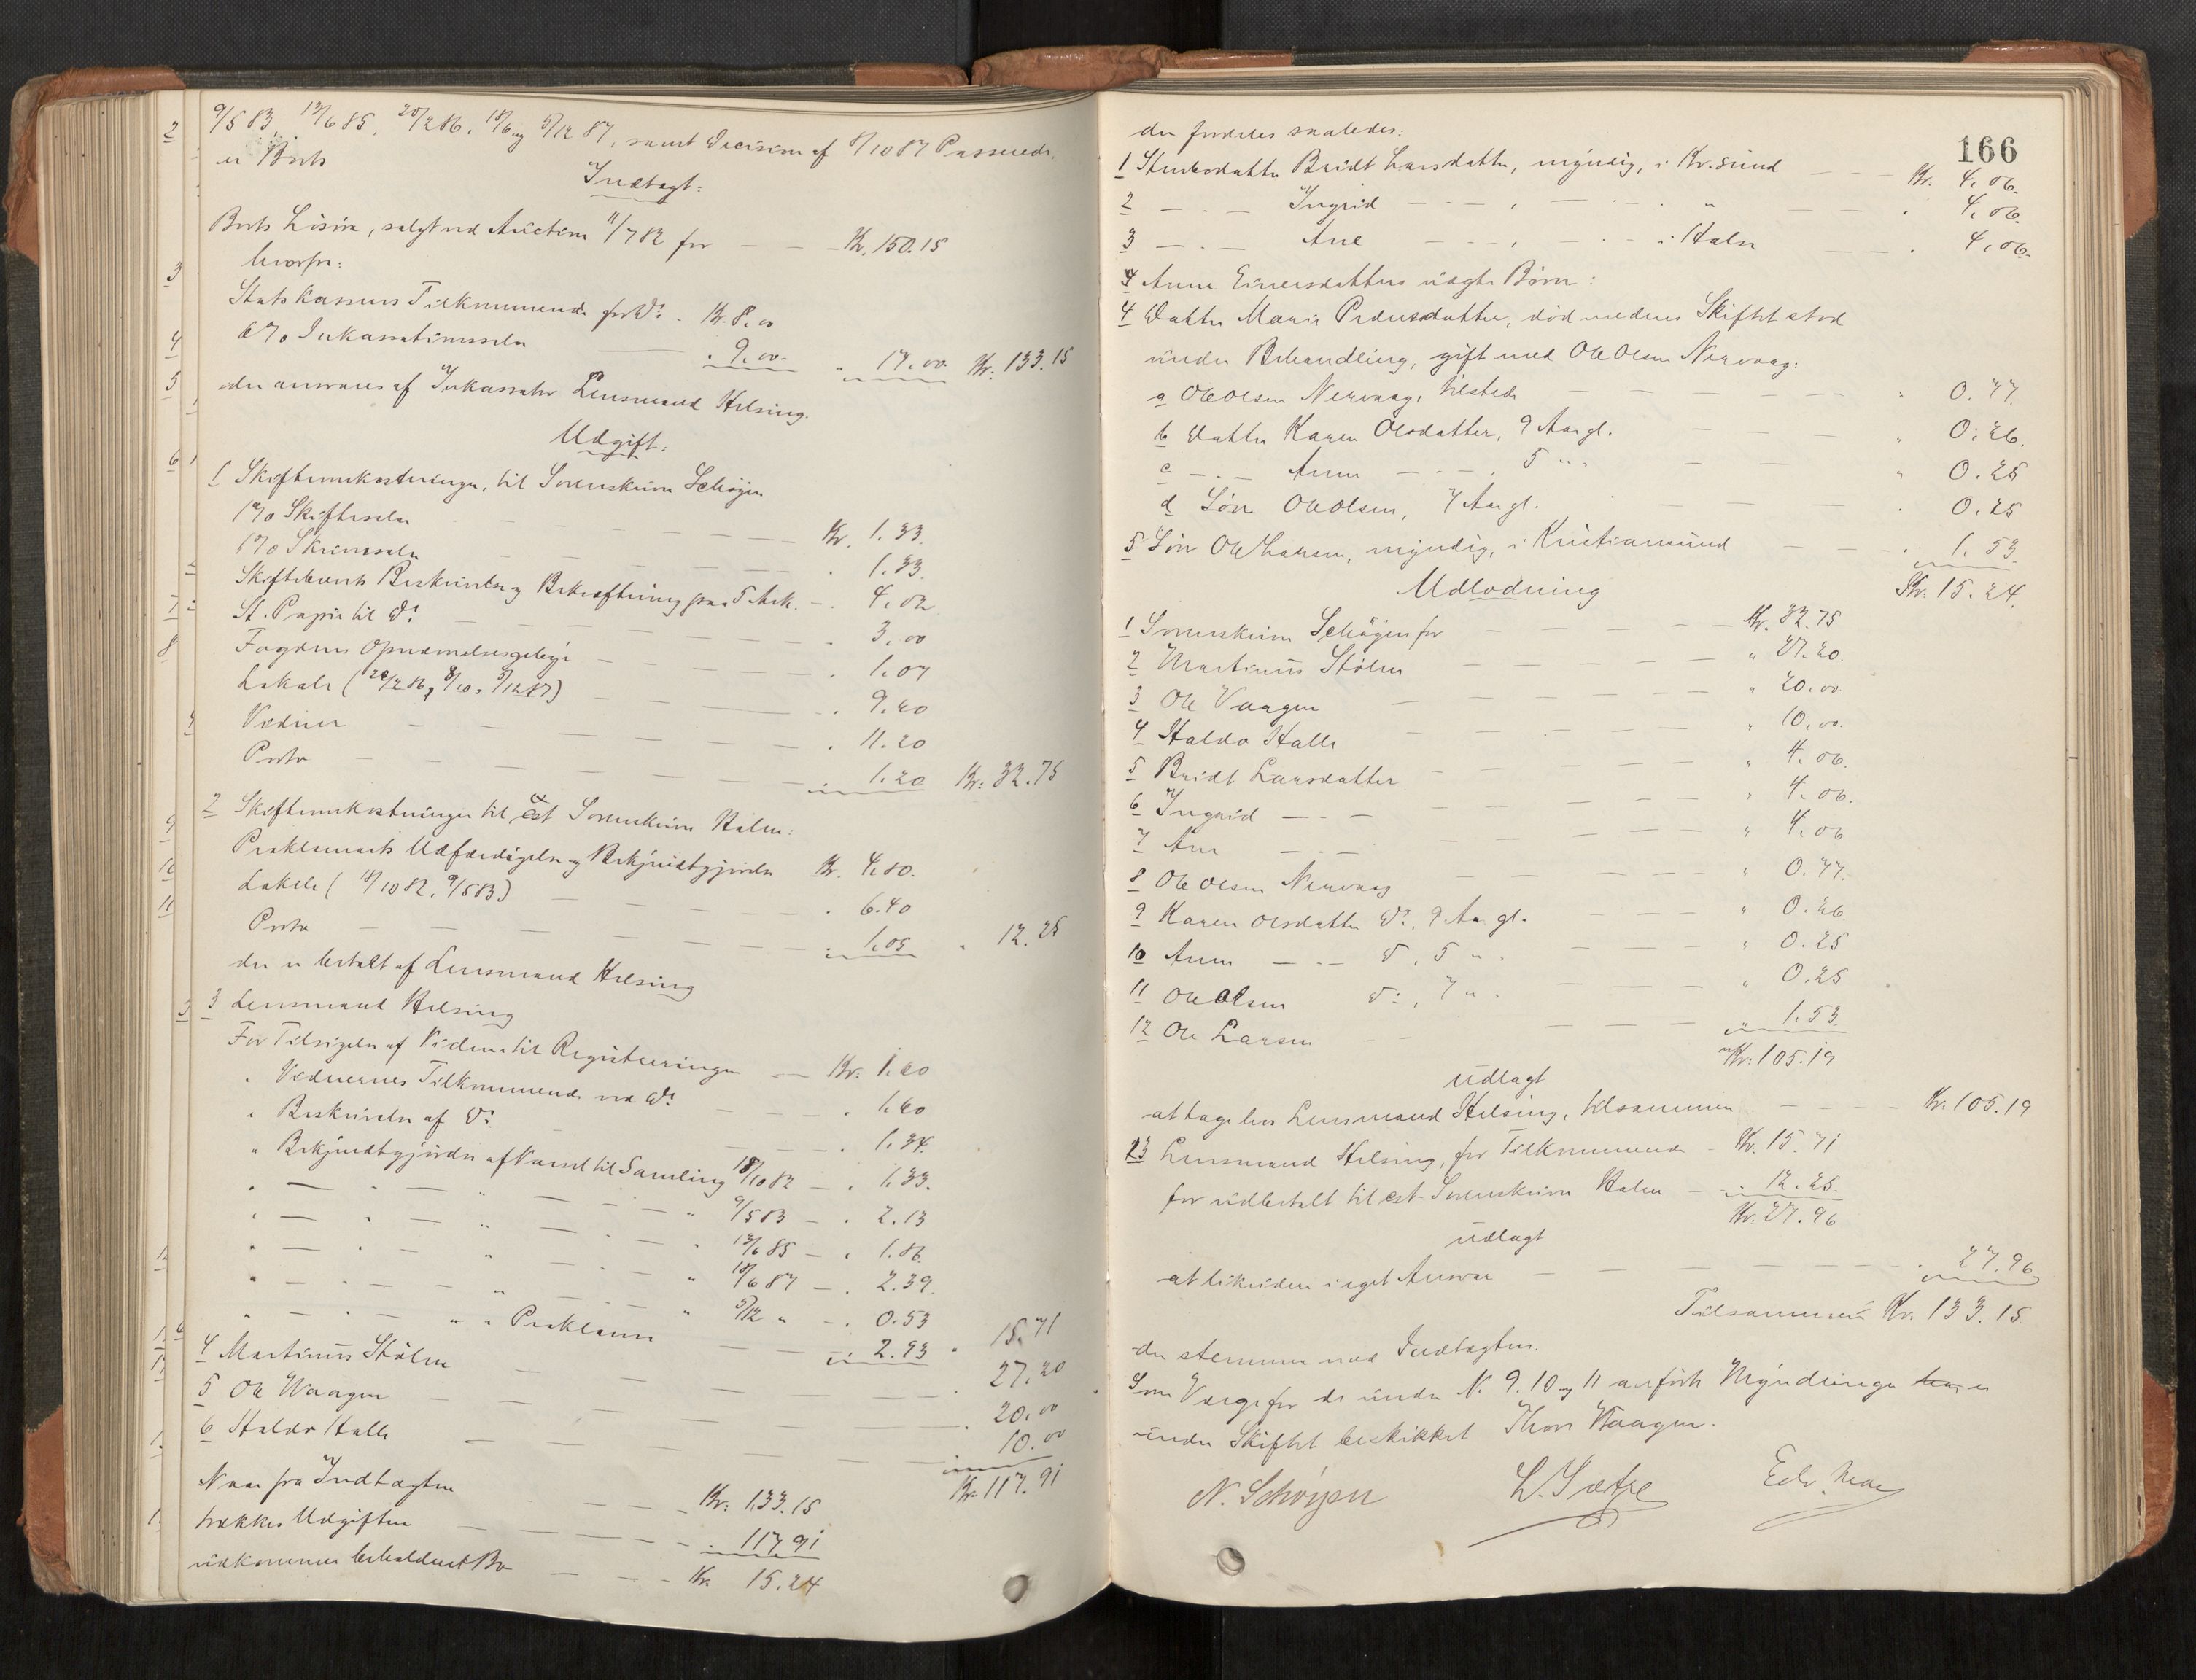 9/5 83, 13/6 85, 20/2 86, 18/6 og 5/12 87, samt Decision af 8/10 87 Passerede
er Boets
Indtægt:
Boets Løsøre, solgt ved Auction 11/7 82 for Kr. 150.15
hvorfra:
Statskassens Tilkommende for Do. Kr. 8.00
6% Inkassationssaler 9.00 " 17.00 Kr. 133.15
der ansvares af Inkassator Lensmand Helsing.
Udgift:
1 Skifteomkostninger, til Sorenskriver Schøyen
1% Skiftesaler Kr. 1.33
1% Skriversaler 1.33
Skiftebrevets Beskrivelse og Bekræftning paa 5 Ark. 4.02
St. Papir til Do. 3.00
Fogdens Opnævnelsesgebyr 1.07
Lokale (20/2 86, 8/10, 5/12 87) 9.60
Vidner 11.20
Porto 1.20 Kr. 32.75
2 Skifteomkostninger til cst Sorenskriver Halm:
Proklamaets Udfærdigelse og Bekjendtgjørelse Kr. 4.80
Lokale (18/10 82, 9/5 83) 6.40
Porto 1.05 " 12.25
der er betalt af Lensmand Helsing
3 Lensmand Helsing
For Tilsigelse af Vidner til Registreringen Kr. 1.60
" Vidnernes Tilkommende ved Do. 1.60
" Beskrivelse af Do. 1.34
" Bekjendtgjørelse af Varsel til Samling 18/10 82 1.33
" — " — " — " 9/5 83 2.13
" — " — " — " 13/6 85 1.86
" — " — " — " 18/6 87 2.39
" — " — " — " 5/12 " 0.53
" — " — " " Proklama 2.93 " 15.71
4 Martinus Stølen 27.20
5 Ole Waagen 20.00
6 Haldo Halle 10.00
Kr. 117.91
Naar fra Indtægten Kr. 133.15
trækkes Udgiften 117.91
udkommer beholdent Bo Kr. 15.24
166
der fordeles saaledes:
1 Stervbodatter Bridt Larsdatter, myndig, i Kr.sund Kr. 4.06
2 — " — Ingrid — " — , — " — " 4.06
3 — " — Ane — " — , — " — i Halsa 4.06
Anne Einersdatters uægte Børn:
4 Datter Marie Pedersdatter, død medens Skiftet stod
under Behandling, gift med Ole Olsen Nervaag:
a Ole Olsen Nervaag, tilstede 0.77
b Datter Karen Olsdatter, 9 Aar gl. 0.26
c — " — Anne — " — , 5 " " 0.25
d Søn Ole Olsen, 7 Aar gl. 0.25
5 Søn Ole Larsen, myndig, i Kristiansund 1.53
Kr. 15.24
Udlodning
1 Sorenskriver Schøyen for Kr. 32.75
2 Martinus Stølen " 27.20
3 Ole Vaagen " 20.00
4 Haldo Halle " 10.00
5 Bridt Larsdatter " 4.06
6 Ingrid — " — " 4.06
7 Ane — " — " 4.06
8 Ole Olsen Nervaag " 0.77
9 Karen Olsdatter Do., 9 Aar gl. " 0.26
10 Anne — " — Do., 5 " " " 0.25
11 Ole Olsen Do., 7 " " " 0.25
12 Ole Larsen " 1.53
Kr. 105.19
udlagt
at tage hos Lensmand Helsing, tilsammen Kr. 105.19
13 Lensmand Helsing, for Tilkommende Kr. 15.71
for udbetalt til cst Sorenskriver Halm 12.25
Kr. 27.96
udlagt
at likvidere i eget Ansvar 27.96
Tilsammen Kr. 133.15
der stemmer med Indtægten.
Som Værge for de under N. 9. 10 og 11 anførte Myndlinger er
under Skiftet beskikket Thore Waagen.
N. Schøyen L. Sætre Edv.